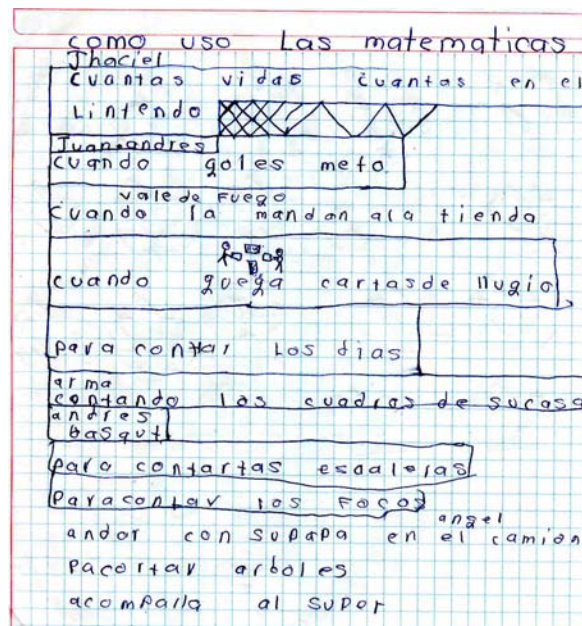 como uso Las matematicas
Jhaciel
cuantas vidas cuantas en el
Lintendo
Juan andres
cuando goles meto
vale de Fuego
cuando la mandan ala tienda
cuando guega cartas de llugio
para contar Los dias
arma
contando las cuadras de su casa
andres
basqut
para contar tas esaaleras
Para contar los Focos
angel
andar con su papa en el camion
pacortar arboles
acompalla al super